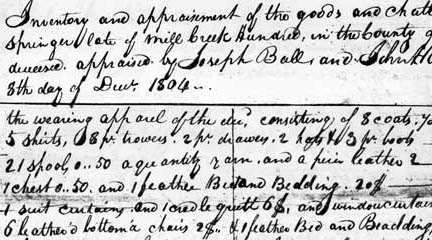 Inventory and appraisement of the goods and chatt
Springer late of Mill Creek Hundred, in the County o
deceased. appraised by Joseph Ball, and John
8th day of Decr. 1804
the wearing apparel of the decd. consisting of 8 coats.
5 shirts, 8 pr. trowers. 2 pr. drawers. 2 hats & 3 pr. boots
21 spools 0..50 a quantity yarn. and a piece leather 2
1 chest 0..50. and 1 feather Bed and Bedding. 20$
1 suit curtains. and 1 cradle quilt 6$, and window curtain
6 leather'd bottom'd chairs 2$.. & 1 feather Bed and Beadding,